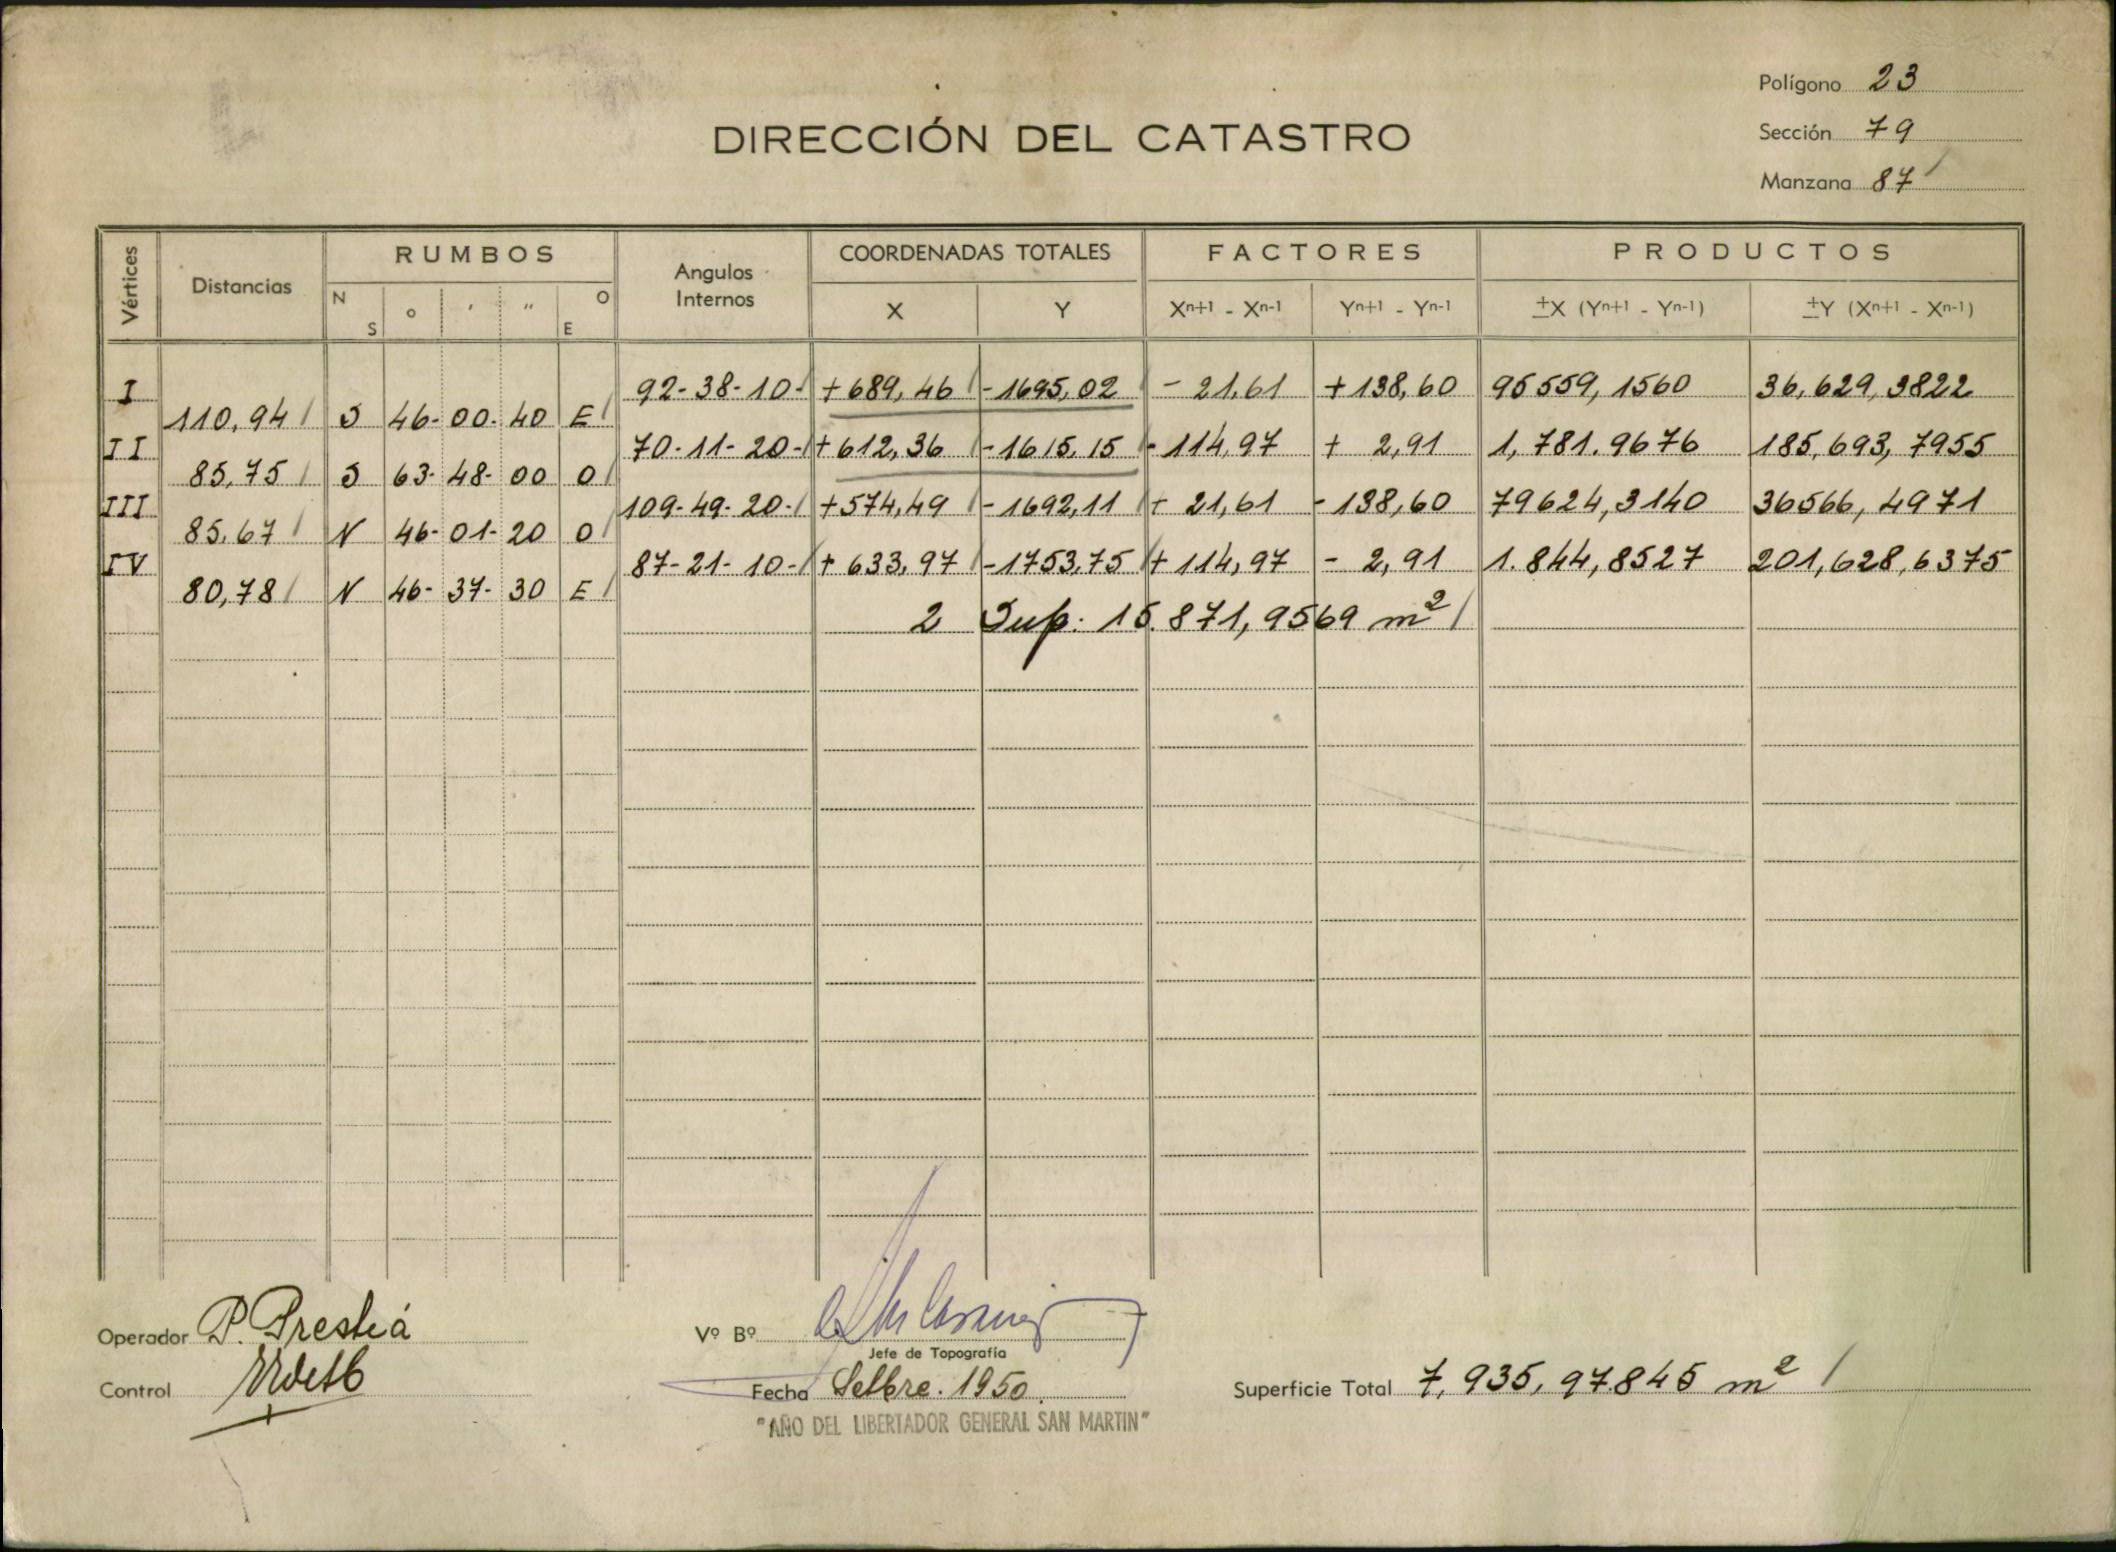 Polígono 23
Sección 79
Manzana 87
DIRECCIÓN DEL CATASTRO
Vértices Distancias RUMBOS Angulos Internos COORDENADAS TOTALES FACTORES PRODUCTOS
N S o ' " O E X Y Xn+1 - Xn-1 Yn+1 - Yn-1 ±X (Yn+1 - Yn-1) ±Y (Xn+1 - Xn-1)
I 92-38-10- +689,46 -1695,02 -21,61 +138,60 95559,1560 36,629,3822
110,94 S 46-00-40 E
II 70-11-20- +612,36 -1615,15 -114,97 + 2,91 1,781.9676 185,693,7955
85,75 S 63-48-00 O
III 109-49-20- +574,49 -1692,11 + 21,61 -138,60 79624,3140 36566,4971
85,67 N 46-01-20 O
IV 87-21-10- + 633,97 -1753,75 + 114,97 - 2,91 1.844,8527 201,628,6375
80,78 N 46-37-30 E
2 Sup: 15.871,9569 m²
Operador P. Prestiá
Control
Vº Bº
Jefe de Topografía
Fecha Setbre. 1950.
"AÑO DEL LIBERTADOR GENERAL SAN MARTIN"
Superficie Total 7,935,97845 m²